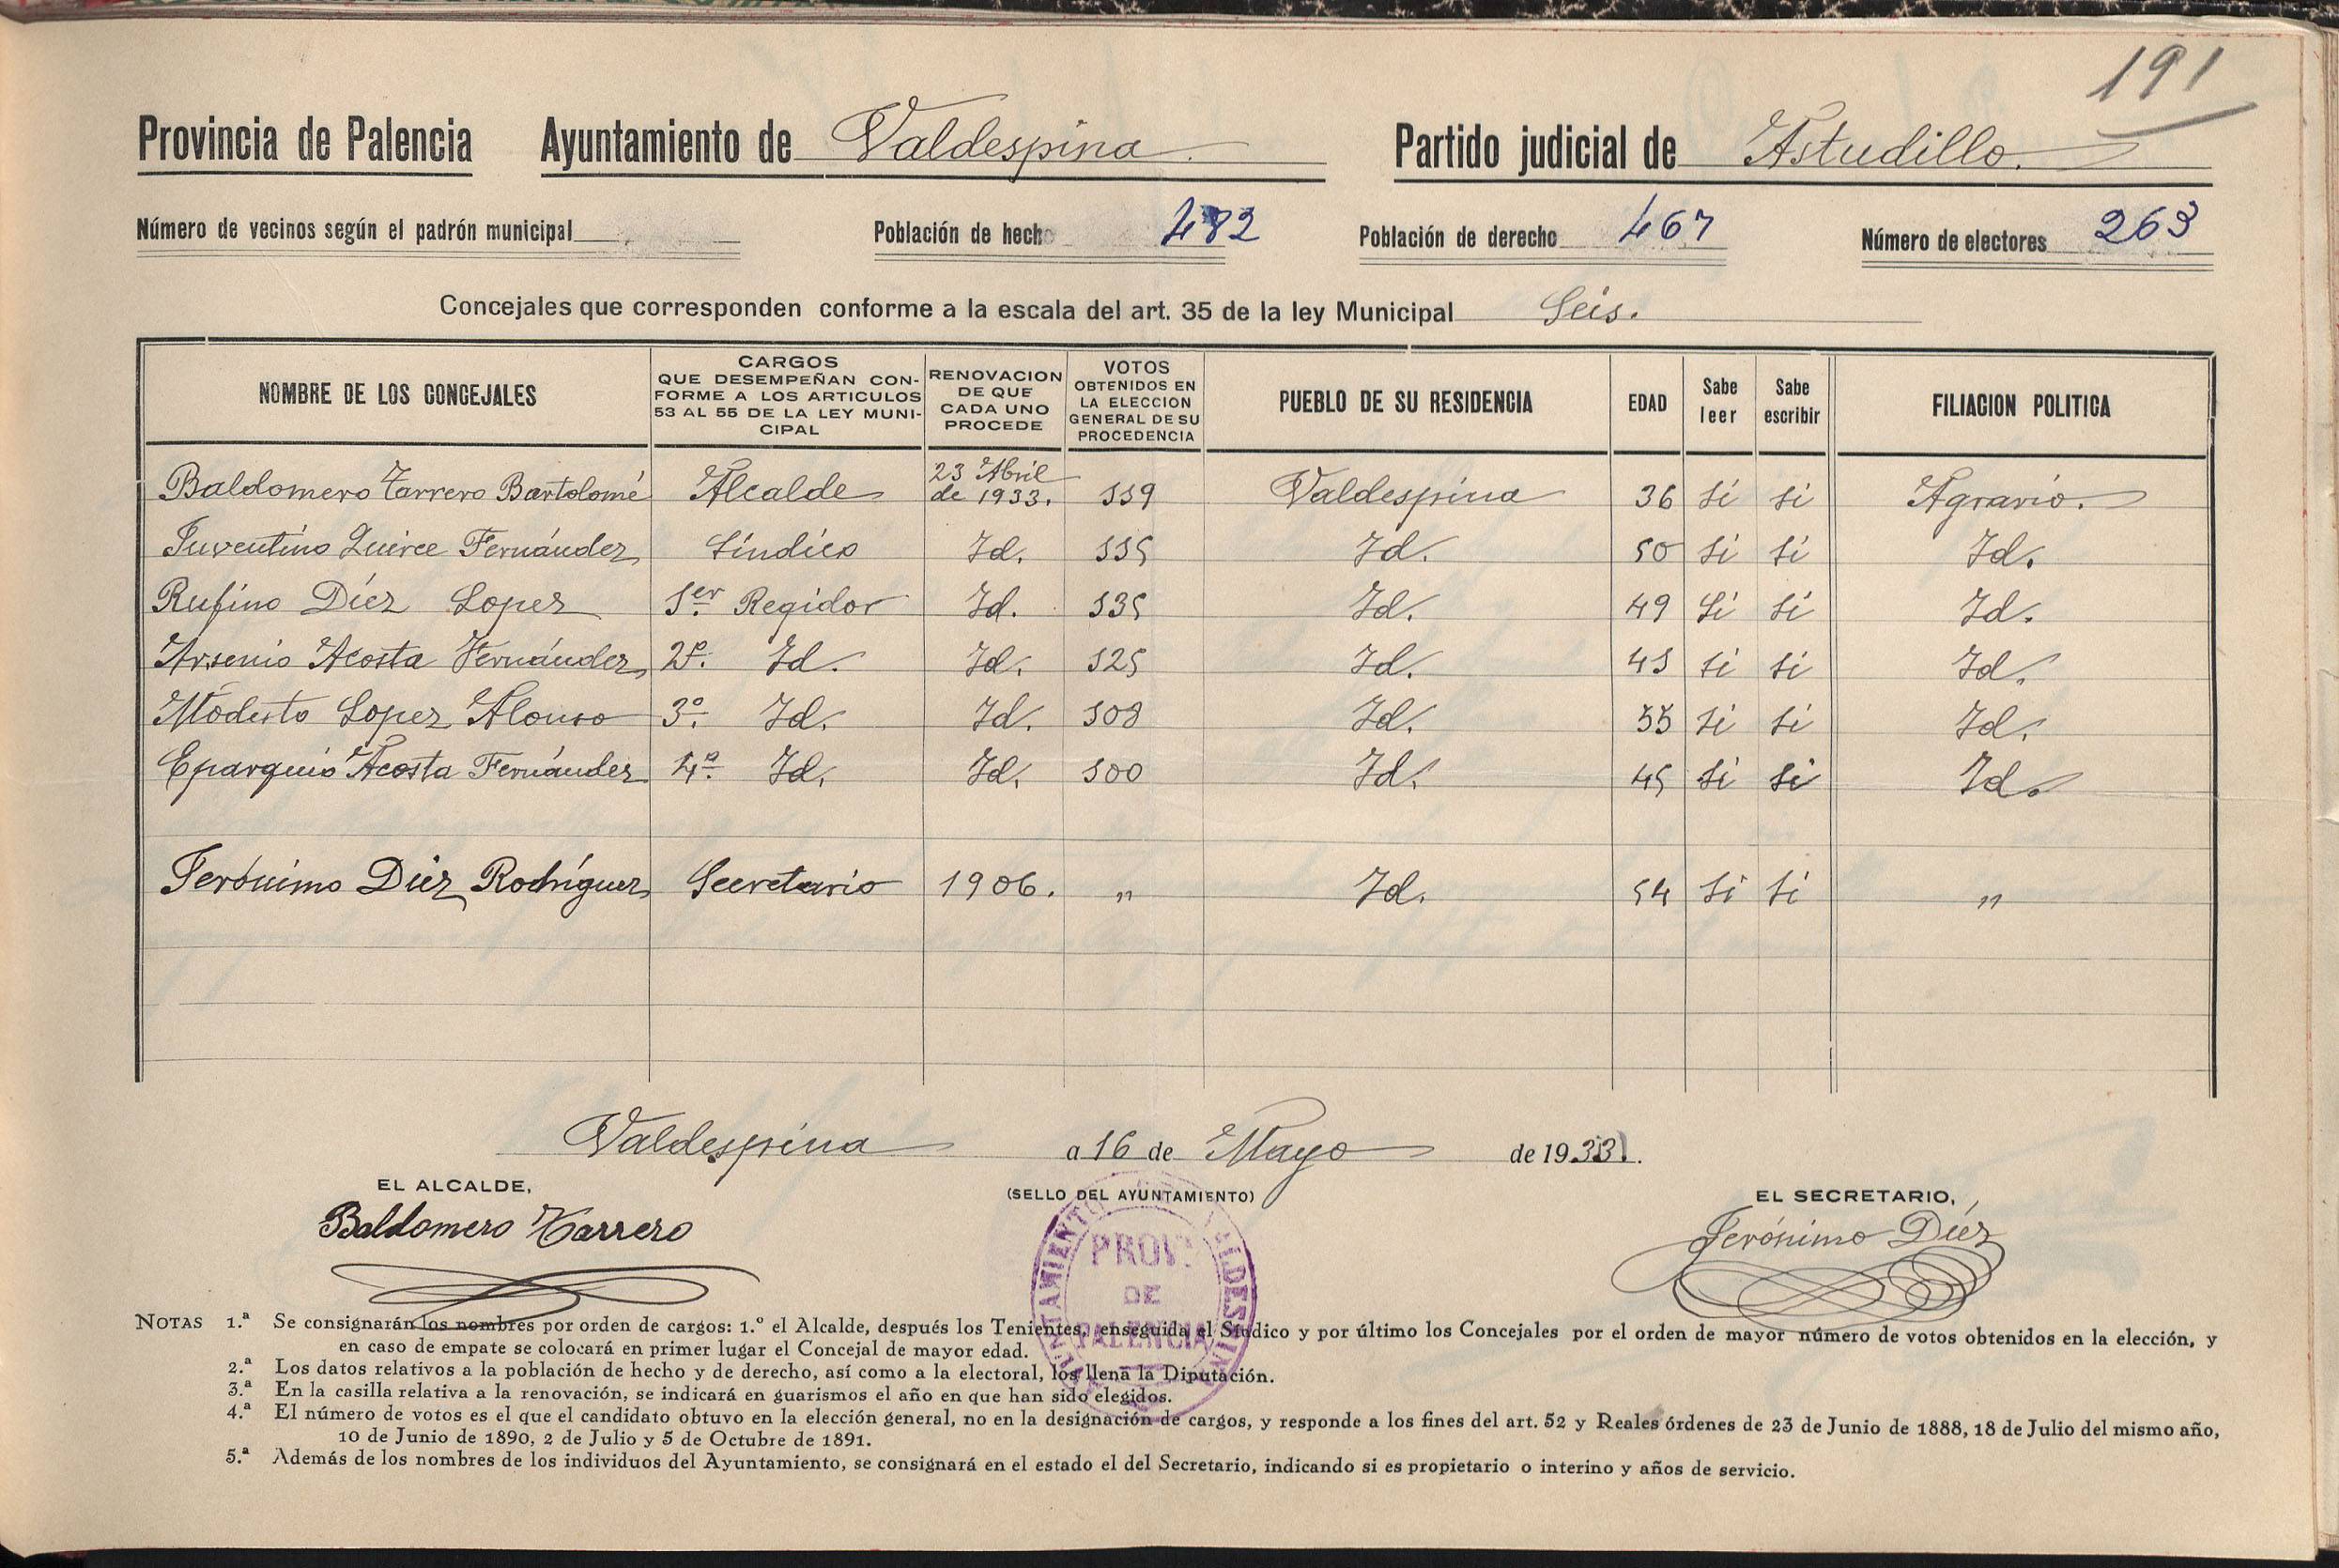 191
Provincia de Palencia Ayuntamiento de Valdespina Partido judicial de Astudillo.
Número de vecinos según el padrón municipal Población de hecho 482 Población de derecho 467 Número de electores 263
Concejales que corresponden conforme a la escala del art. 35 de la ley Municipal Seis.
NOMBRE DE LOS CONCEJALES
CARGOS
QUE DESEMPEÑAN CON-
FORME A LOS ARTICULOS
53 AL 55 DE LA LEY MUNI-
CIPAL
RENOVACION
DE QUE
CADA UNO
PROCEDE
VOTOS
OBTENIDOS EN
LA ELECCION
GENERAL DE SU
PROCEDENCIA
PUEBLO DE SU RESIDENCIA
EDAD
Sabe
leer
Sabe
escribir
FILIACION POLITICA
Baldomero Tarrero Bartolomé Alcalde 23 Abril de 1933. 119 Valdespina 36 Si si Agrario.
Juventino Quirce Fernández Síndico Id. 115 Id. 50 Si Si Id.
Rufino Díez Lopez 1er Regidor Id. 135 Id. 49 Si Si Id.
Arsenio Acosta Fernández 2º. Id. Id. 125 Id. 41 si si Id.
Modesto Lopez Alonso 3º. Id. Id. 108 Id. 55 Si Si Id.
Eparquio Acosta Fernández 4º. Id. Id. 100 Id. 45 Si Si Id.
Jerónimo Díez Rodríguez Secretario 1906. " Id. 54 Si Si "
Valdespina a 16 de Mayo de 1933.
EL ALCALDE,
(SELLO DEL AYUNTAMIENTO)
EL SECRETARIO,
Baldomero Tarrero
Jerónimo Díez
AYUNTAMIENTO VALDESPINA
PROV.
DE
PALENCIA
NOTAS 1.ª Se consignarán los nombres por orden de cargos: 1.º el Alcalde, después los Tenientes, enseguida el Síndico y por último los Concejales por el orden de mayor número de votos obtenidos en la elección, y
en caso de empate se colocará en primer lugar el Concejal de mayor edad.
2.ª Los datos relativos a la población de hecho y de derecho, así como a la electoral, los llena la Diputación.
3.ª En la casilla relativa a la renovación, se indicará en guarismos el año en que han sido elegidos.
4.ª El número de votos es el que el candidato obtuvo en la elección general, no en la designación de cargos, y responde a los fines del art. 52 y Reales órdenes de 23 de Junio de 1888, 18 de Julio del mismo año,
10 de Junio de 1890, 2 de Julio y 5 de Octubre de 1891.
5.ª Además de los nombres de los individuos del Ayuntamiento, se consignará en el estado el del Secretario, indicando si es propietario o interino y años de servicio.